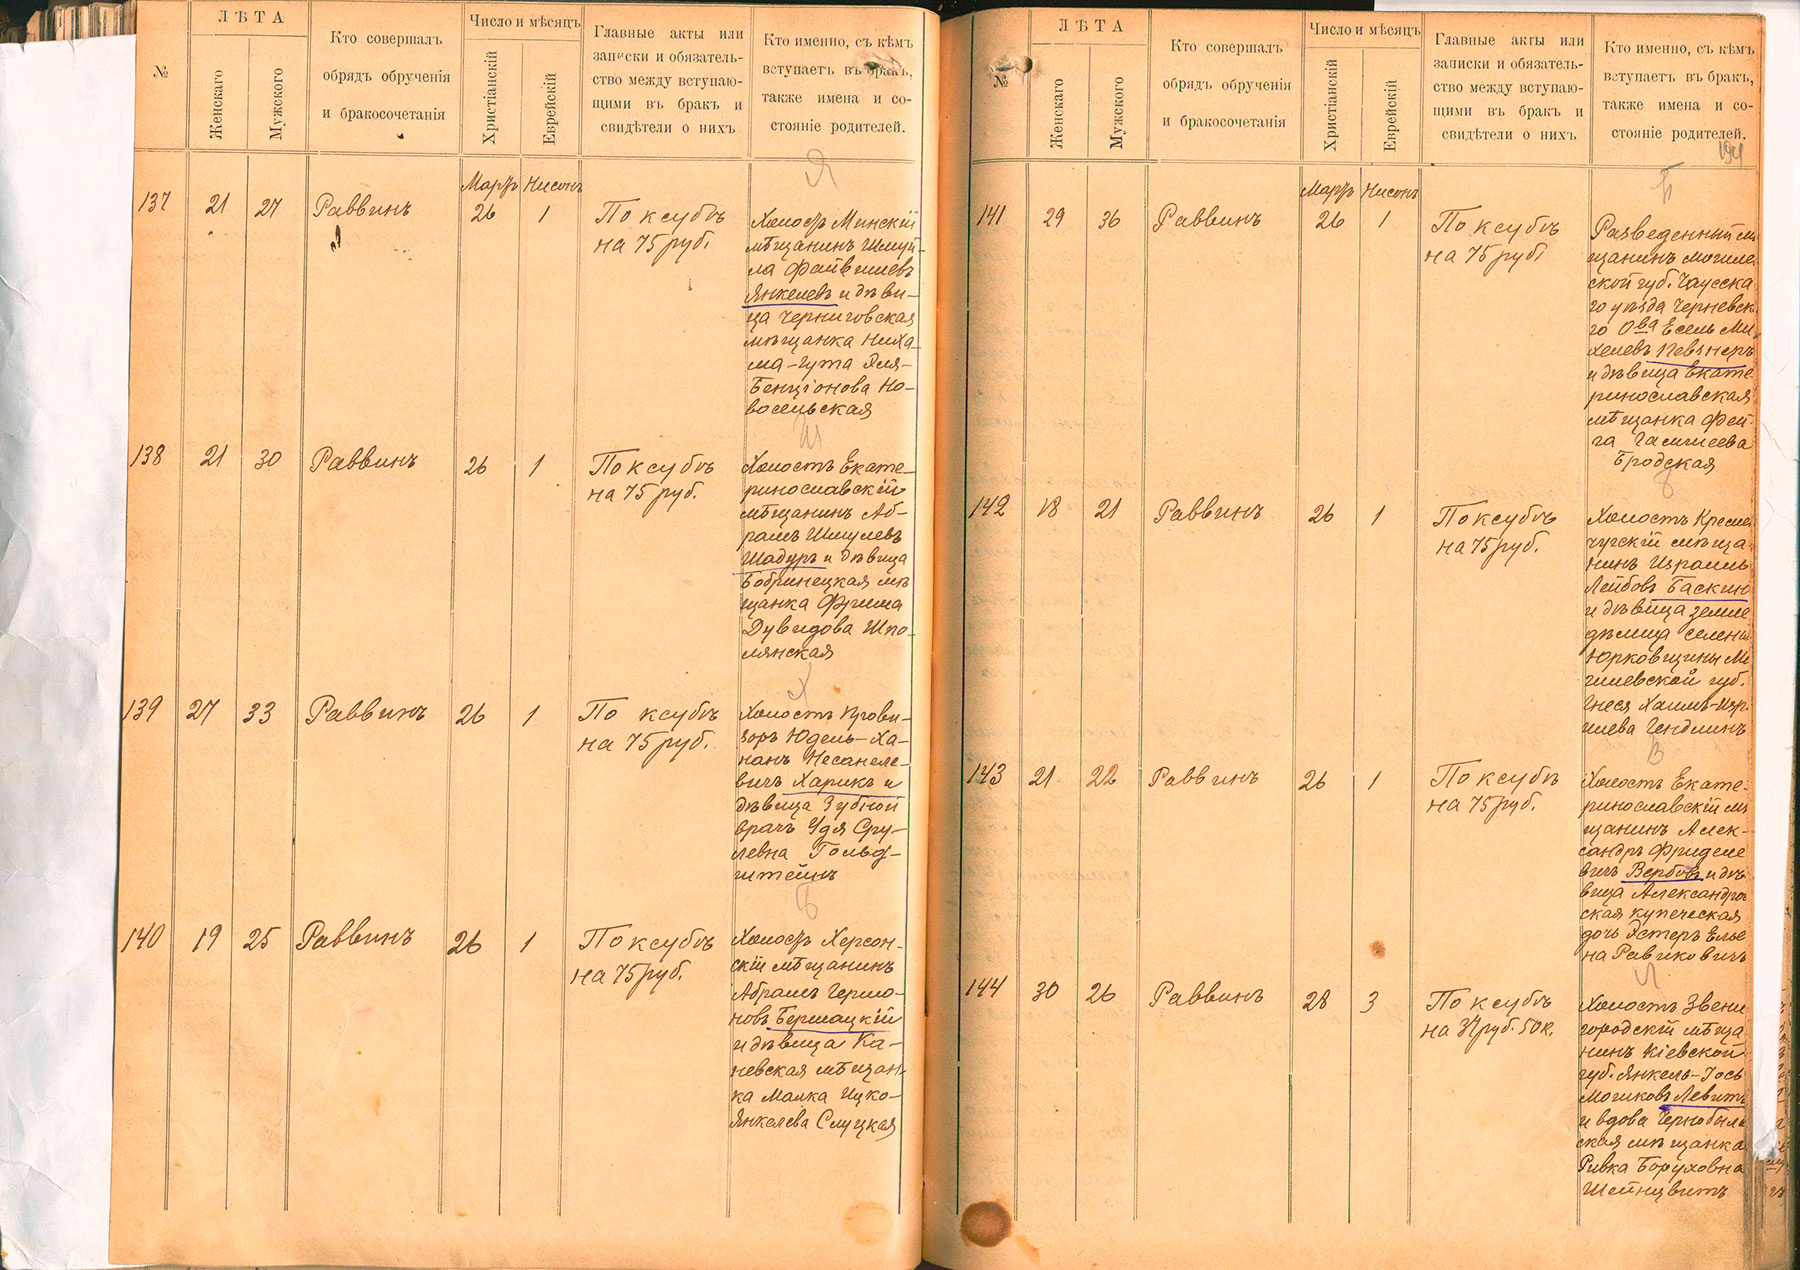 №
ЛѢТА
Женскаго
Мужского
Кто совершалъ
обрядъ обрученія
и бракосочетанія
Число и мѣсяцъ
Христіанскій
Еврейскій
Главные акты или
записки и обязатель-
ство между вступаю-
щими въ бракъ и
свидѣтели о нихъ
Кто именно, съ кѣмъ
вступаетъ въ бракъ,
также имена и со-
стояніе родителей.
Я
Мартъ Нисонъ
137 21 27 Раввинъ 26 1 По ксубѣ
на 75 руб.
Холостъ Минскій
мѣщанинъ Шмуй-
ла Файвишевъ
Янкелевъ и дѣви-
ца Черниговская
мѣщанка Ниха-
ма-Гута Эля-
Бенціонова Но-
восельская
Ш
138 21 30 Раввинъ 26 1 По ксубѣ
на 75 руб.
Холостъ Екате-
ринославскій
мѣщанинъ Аб-
рамъ Шмулевъ
Шадуръ и дѣвица
Бобринецкая мѣ
щанка Фрима
Дувидова Шпо-
лянская
Х
139 27 33 Раввинъ 26 1 По ксубѣ
на 75 руб.
Холостъ Прови-
зоръ Юдель-Ха-
нанъ Несанеле-
вичъ Харикъ и
дѣвица Зубной
врачъ Удя Сру-
левна Гольд-
штейнъ
Б
140 19 25 Раввинъ 26 1 По ксубѣ
на 75 руб.
Холостъ Херсон-
скій мѣщанинъ
Абрамъ Гершо-
новъ Бершацкій
и дѣвица Ка-
невская мѣщан-
ка Малка Ицко-
Янкелева Слуцкая
№
ЛѢТА
Женскаго
Мужского
Кто совершалъ
обрядъ обрученія
и бракосочетанія
Число и мѣсяцъ
Христіанскій
Еврейскій
Главные акты или
записки и обязатель-
ство между вступаю-
щими въ бракъ и
свидѣтели о нихъ
Кто именно, съ кѣмъ
вступаетъ въ бракъ,
также имена и со-
стояніе родителей.
Мартъ Нисонъ
141 29 36 Раввинъ 26 1 По ксубѣ
на 75 руб.
Разведенный мѣ
щанинъ Могилев
ской губ. Чаусска
го уѣзда Черневск
го О-ва Есель Ми
хелевъ Певзнеръ
и дѣвица Екате-
ринославская
мѣщанка Фей-
га Гамшеева
Бродская
Б
142 18 21 Раввинъ 26 1 По ксубѣ
на 75 руб.
Холостъ Кремен
чугскій мѣща
нинъ Израиль
Лейбовъ Баскинъ
и дѣвица земле
дѣлица селенія
Юрковщины Мо
гилевской губ.
Гнеся Хаимъ-Изр
илева Гендлинъ
В
143 21 22 Раввинъ 26 1 По ксубѣ
на 75 руб.
Холостъ Екате-
ринославскій мѣ
щанинъ Алек-
сандръ Фриделе
вичъ Вербовъ и дѣ-
вица Александров
ская купеческая
дочь Эстеръ Елье
на Равиковичъ
Л
144 30 26 Раввинъ 28 3 По ксубѣ
на 37 руб. 50 к.
Холостъ Звени
городскій мѣща
нинъ Кіевской
губ. Янкель-Іось
Мошковъ Левитъ
и вдова Чернобыль
ская мѣщанка
Ривка Боруховна
Шейнцвитъ